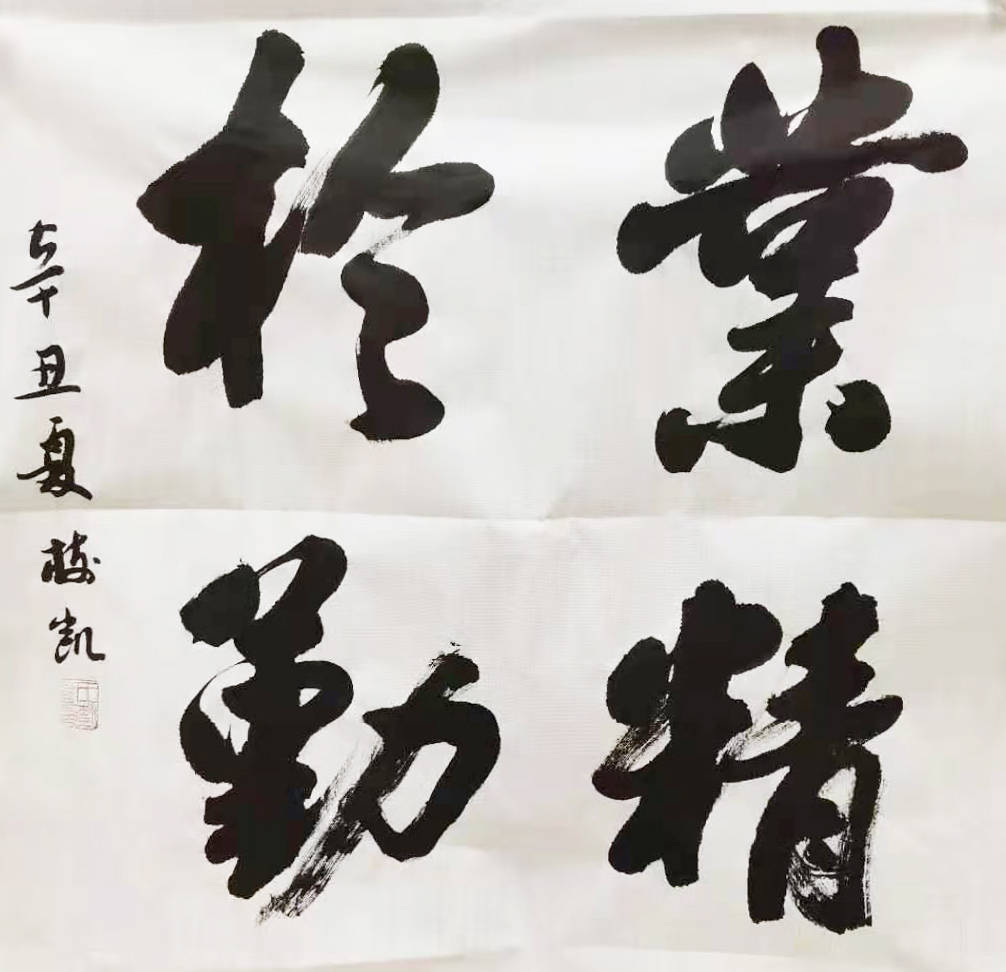 業精
於勤
辛丑夏 凯